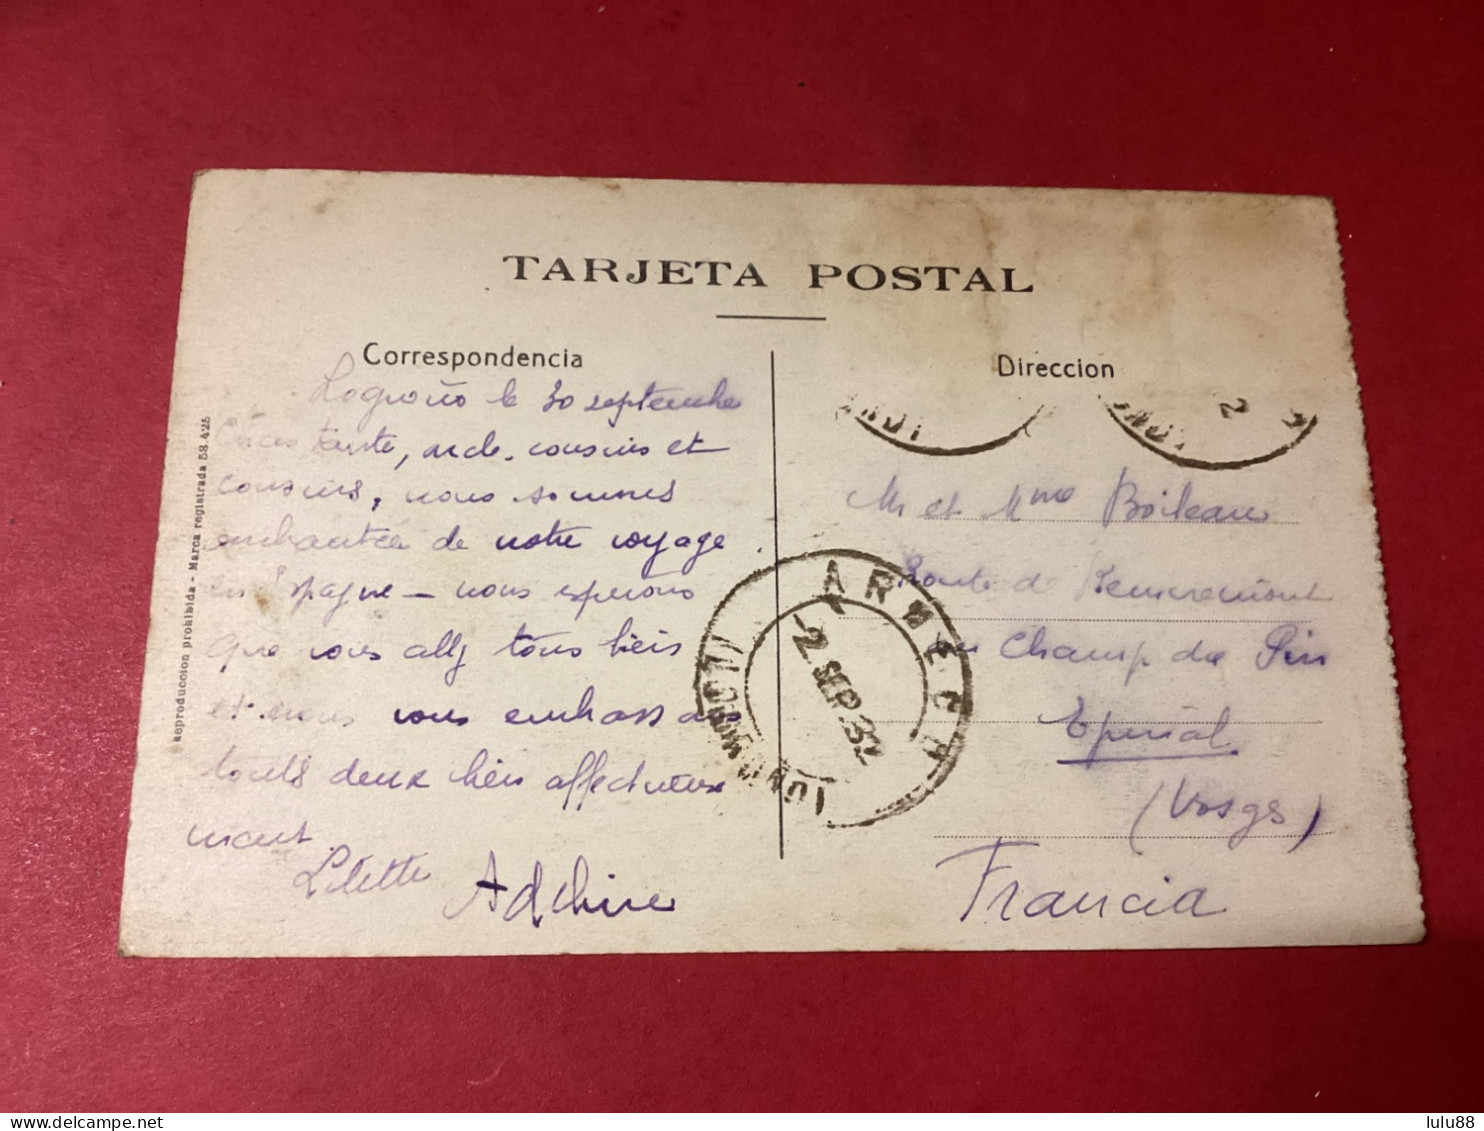 TARJETA POSTAL
Correspondencia
Logroño le 30 septembre
tante, oncle, cousins et
cousins, nous sommes
enchantée de notre voyage
en Espagne — nous espérons
que vous allez tous bien
et nous vous embrassons
touts deux bien affectueuse
ment.
Lilette
Reproduccion prohibida - Marca registrada 58.425
Direccion
Mr et Mme Boileau
Route de Remiremont
au Champ du Pin
Epinal
(Vosges)
Francia
2 SEP 32
lulu88